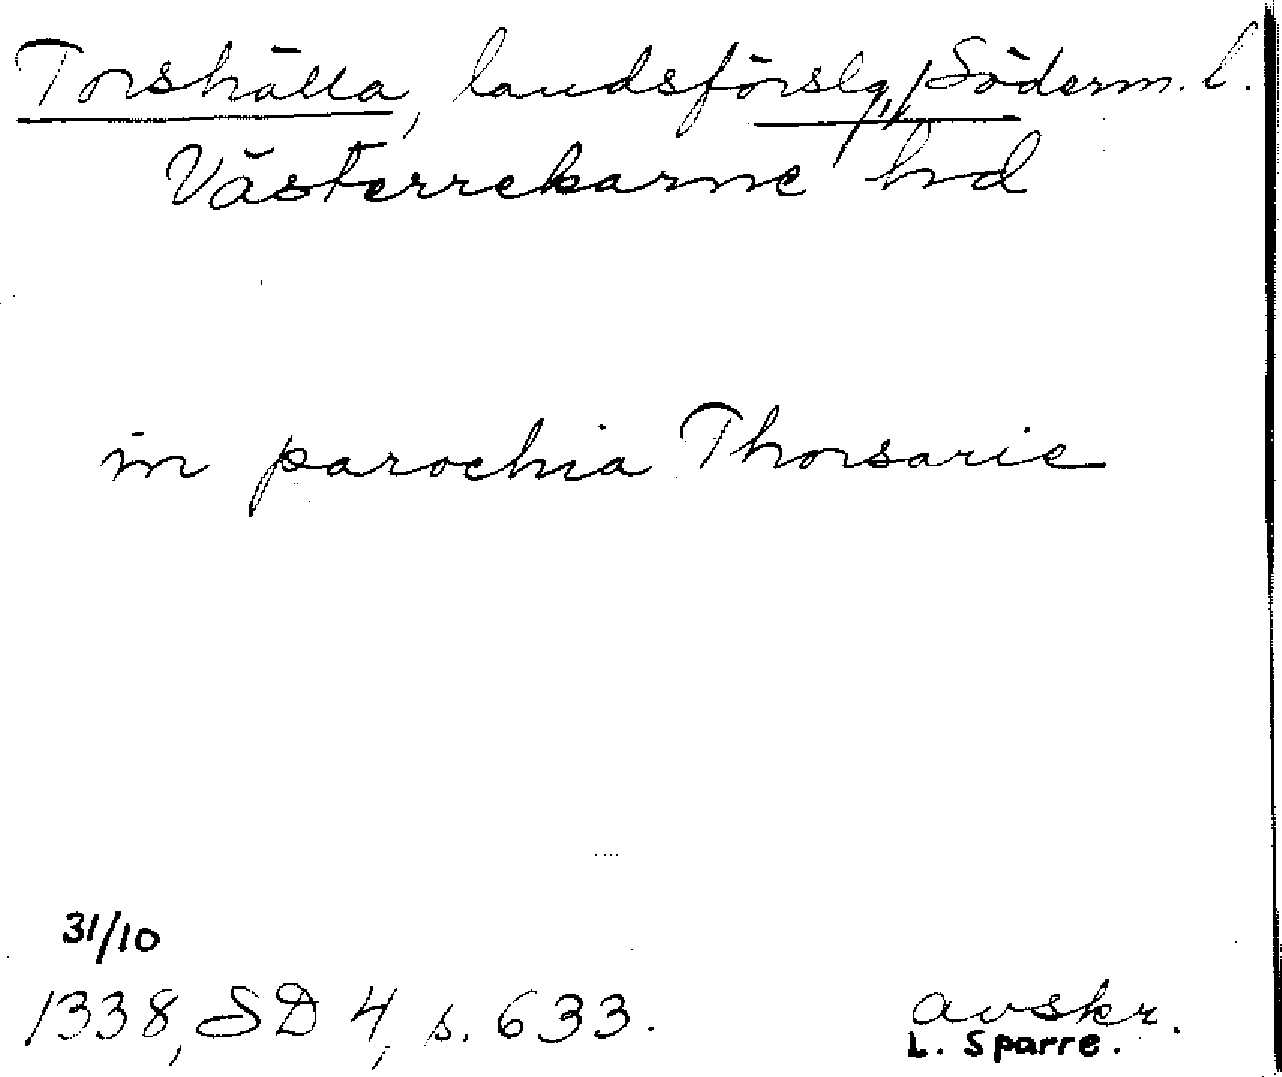 Torshälla, landsförslg, Söderm. l.
Västerrekarne hd
in parochia Thorsarie
31/10
1338, SD 4, s. 633.
avskr.
L. Sparre.